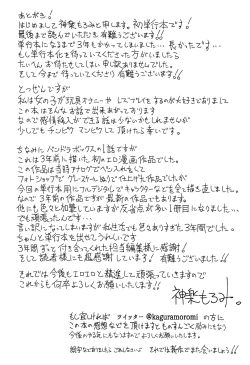 あとがき！
はじめまして神楽もろみと申します。初単行本です！
最後まで読んでいただき有難うございます！！
単行本になるまで3年もかかってしまいました…長かったです…
もし単行本化を待っていてくださった方がいましたら
たいへんお待たせしてしまい申し訳ありませんでした。
そして今まで待っていてくださり有難うございます！！
とつぜんですが
私は女の子が玩具オナニーや レズプレイをするのが大好きでありまして
この本はそんなお話で出来あがっております
なので感情移入ができる話は少ないかもしれませんが
少しでもチンピク マンピクして頂けたら幸いです。
ちなみに パンドラボックスの1話ですが
これは3年前に描いた初のエロ漫画作品でした。
この作品は当時アナログでペン入れをして
フォトショップでグレースケールぬりで仕上げた作品でしたが
今回の単行本用にフルデジタルでキャラクターなどを全て描き直しました。
なので3年前の作品ですが最新の作品でもあります。
他にも色々と加筆していますが反省点が多い1冊目になりました…
でも頑張ったんです…
言い訳になってしまいますが私生活でも色々ありすぎた3年間でした。
ちゃんと単行本を出せてうれしいです
3年間ずっと付き合ってくれた担当編集様に感謝！
そして読者様にも超感謝しています！ 有難うございました！！
それでは今後もエロエロと精進して頑張っていきますので
これからも何卒よろしくお願いします！！
神楽もろみ。
もし宜ければ ツイッター @kaguramoromi の方に
この本の感想などを頂けますとものすごく励みになり
今後の作品にもつながりますのでよろしくお願いしたします。
それでは新作でまた会いましょう！！